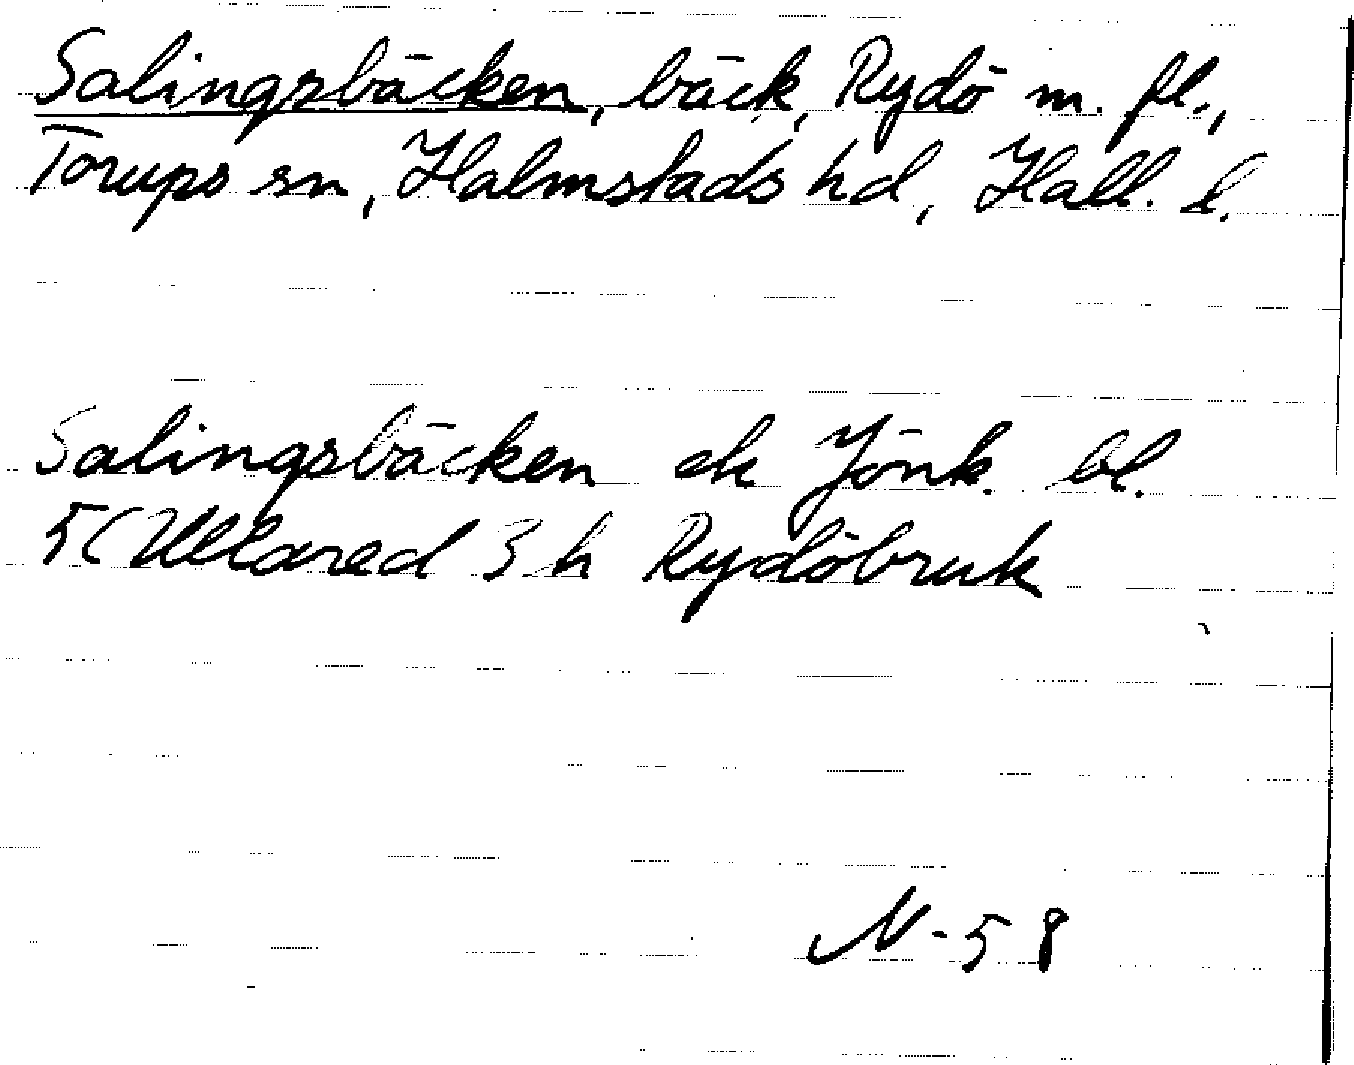 Salingsbäcken, bäck, Rydö m. fl.,
Torups sn, Halmstads hd, Hall. l.
Salingsbäcken ek Jönk. bl.
5C Ullared 3 h Rydöbruk
N-58